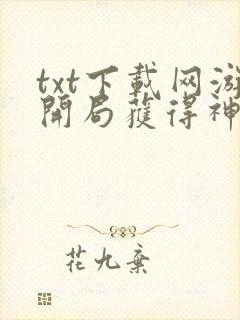 txt下載网游
開局獲得神
花九棄